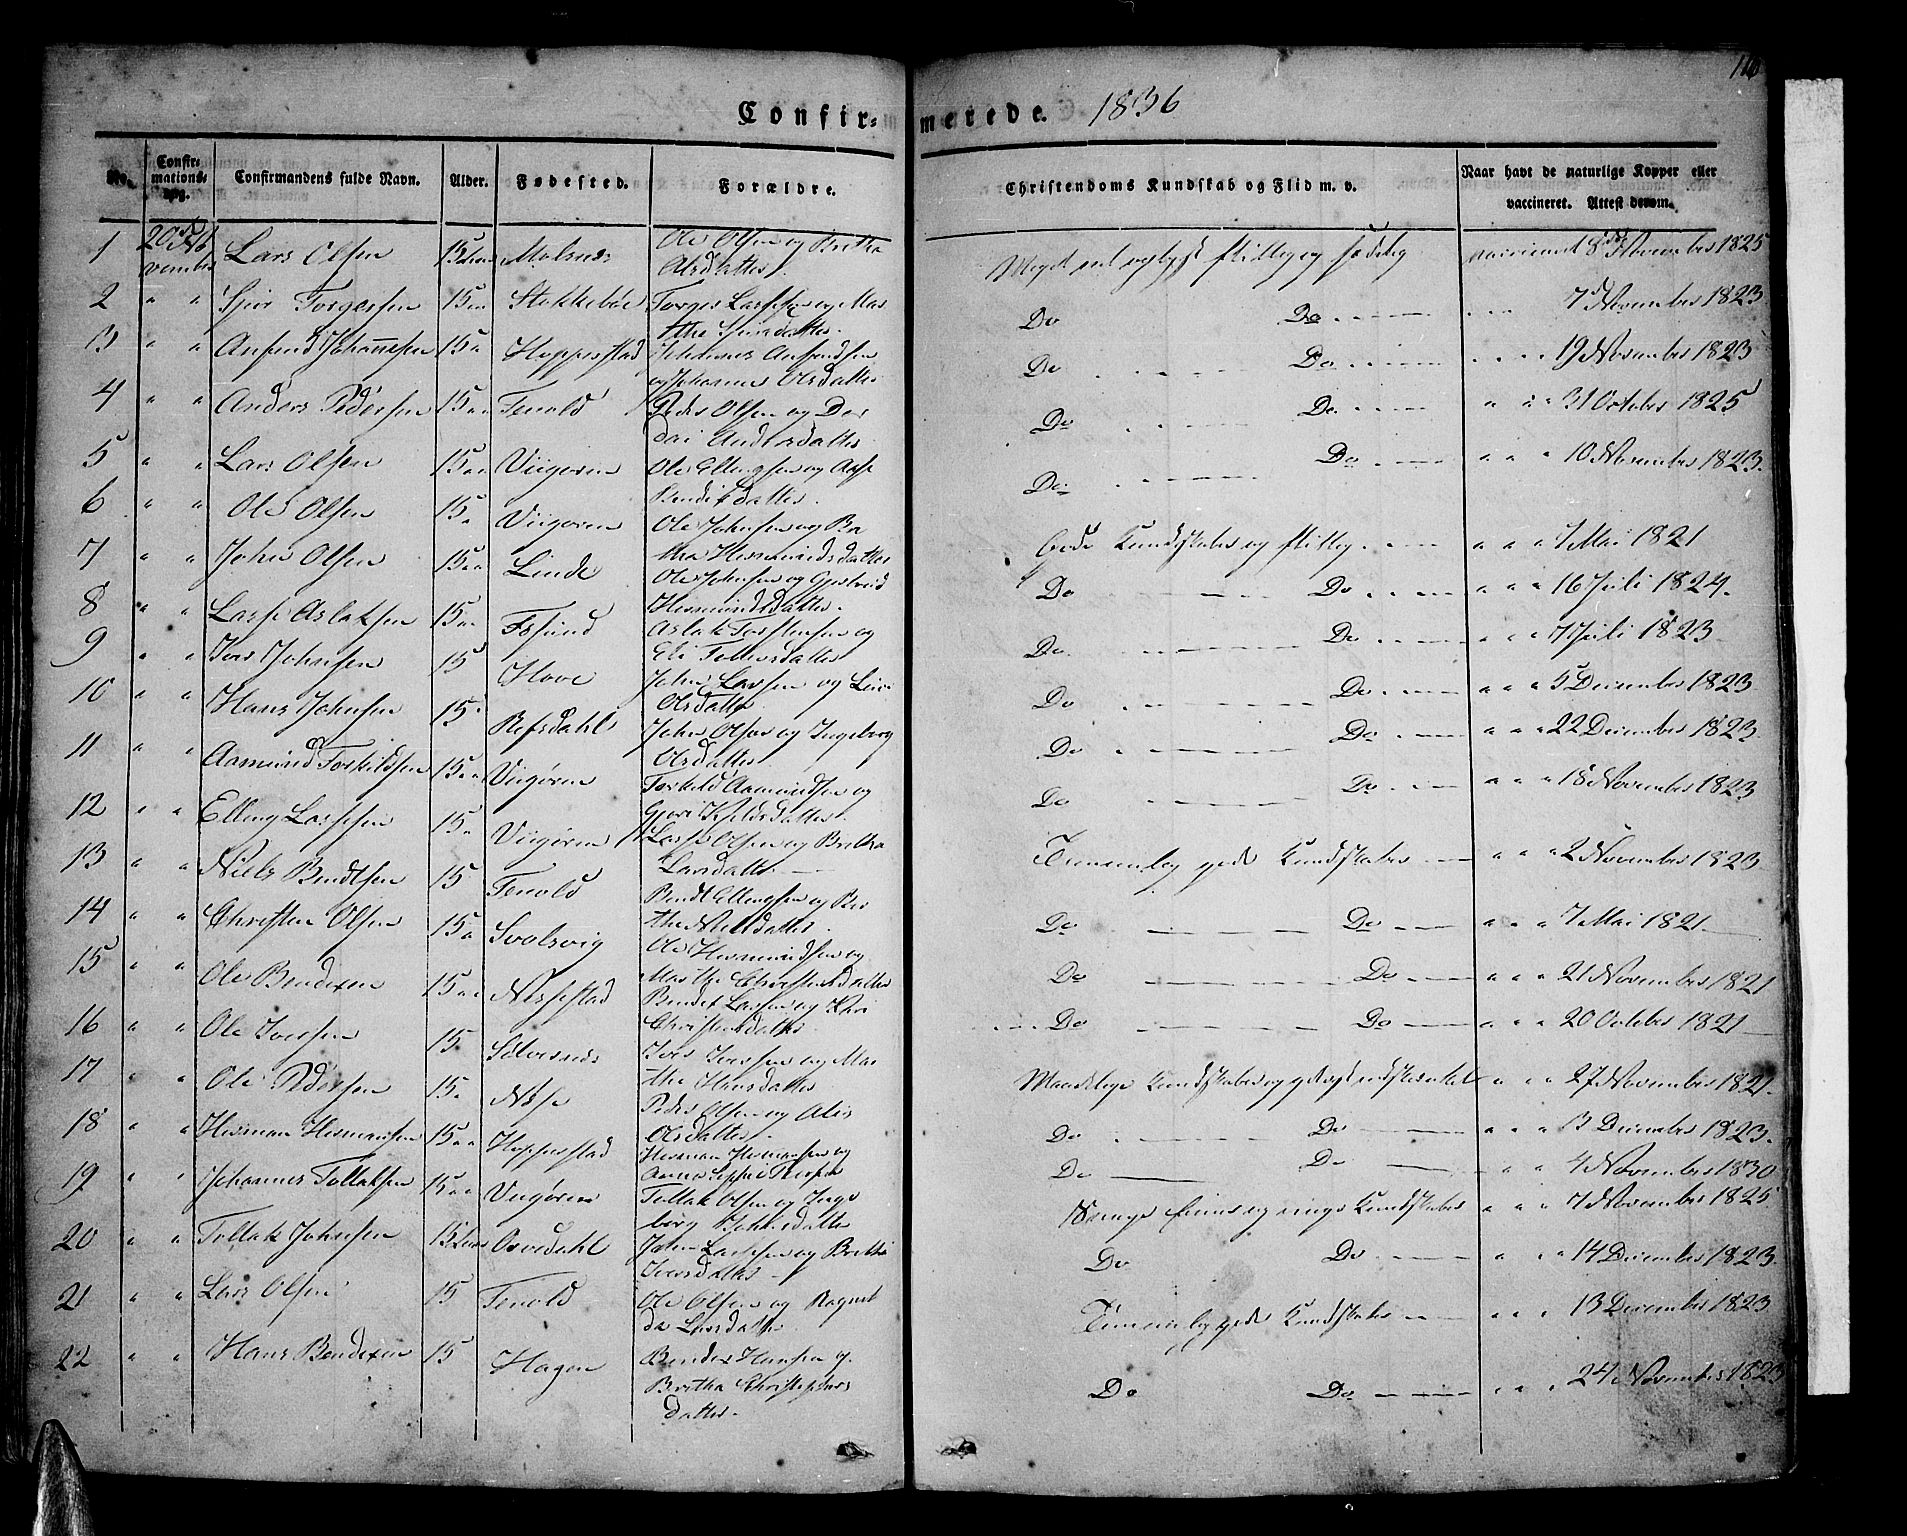 116
Confir= merede. 1836
No. Confir= mations= dag. Confirmandens fulde Navn. Alder. Fødested. Forældre. Christendoms Kundskab og Flid m. v. Naar havt de naturlige Kopper eller vaccineret. Attest derom.
1 20de No vember Lars Olsen 15 Molsnes Ole Olsen og Britha Olsdatter. Meget vel oplyst flittig og sædelig vaccineret 8de November 1825
2 " " Torgersen 15 Stokkebøe Torger Larssen og Mar the datter. Do Do 7 November 1823
3 " " Anfind Johannessen 15 Hoppestad Johannes Anfindsen og Johanne Olsdatter Do Do 19 November 1823
4 " " Anders Pedersen 15 Tenold Peder Olsen og Dor Andersdatter Do Do " " " 31 October 1825
5 " " Lars Olsen 15 Viigøren Ole Ellingsen og Bendixdatter. Do. Do " " " 10 November 1823.
6 " " Ole Olsen 15 Viigøren Ole Johnsen og Bri tha Hermundsdatter Gode Kundskaber og flittig " " " 7 Mai 1821
7 " " John Olsen 15 Linde Ole Johnsen og Hermundsdatter. Do Do " " " 16 Juli 1824.
8 " " Lasse Aslaksen 15 Aslak Torstensen og Eli datter Do. Do " " " 7 Juli 1823
9 " " Iver Johnsen 15 Hove John Larssen og Olsdatter Do Do " " " 5 December 1823
10 " " Hans Johnsen 15 Refsdahl John Olsen og Ingeborg Olsdatter Do Do " " " 22 December 1823.
11 " " Aamund Torkildsen 15 Viigøren Torkild Aamundsen og datter. Do Do " " " 18 November 1823
12 " " Elling Larssen 15 Viigøren Lars Olsen og Britha Larsdatter Temmelig gode Kundskaber " " " 2 November 1823
13 " " Niels Bendtsen 15 Tenold Bendt Ellingsen og Nielsdatter. Do Do " " " 7 Mai 1821
14 " " Christen Olsen 15 Svolsvig Ole Hermundsen og Marthe Christensdatter Do Do " " " 21 November 1821
15 " " Ole Bendixen 15 Nessestad Bendix Larsen og Kari Christensdatter Do Do " " " 20 October 1821
16 " " Ole Iversen 15 Iver Iversen og Mar the Hansdatter Maadelige Kundskaber og " " " 27 November 1821.
17 " " Ole Pedersen 15 Nese Peder Olsen og Olsdatter. Do Do " " " 3 December 1823.
18 " " Herman Hermansen 15 Hoppestad Herman Hermansen og Anna Do Do " " 4 November 1830
19 " " Johannes Tollaksen 15 Viigøren Tollak Olsen og Inge borg Johnsdatter og ringe Kundskaber " " " 7 November 1825
20 " " Tollak Johnsen 15 Orvedahl John Larssen og Britha Iversdatter Do Do " " " 14 December 1823.
21 " " Lars Olsen 15 Tenold Ole Olsen og Ragnil da Larsdatter Temmelig gode Kundskaber " " " 13 December 1823
22 " " Hans Bendixen 15 Hagen Bendix Hansen og Britha Christophers datter. Do Do " " " 24 November 1823